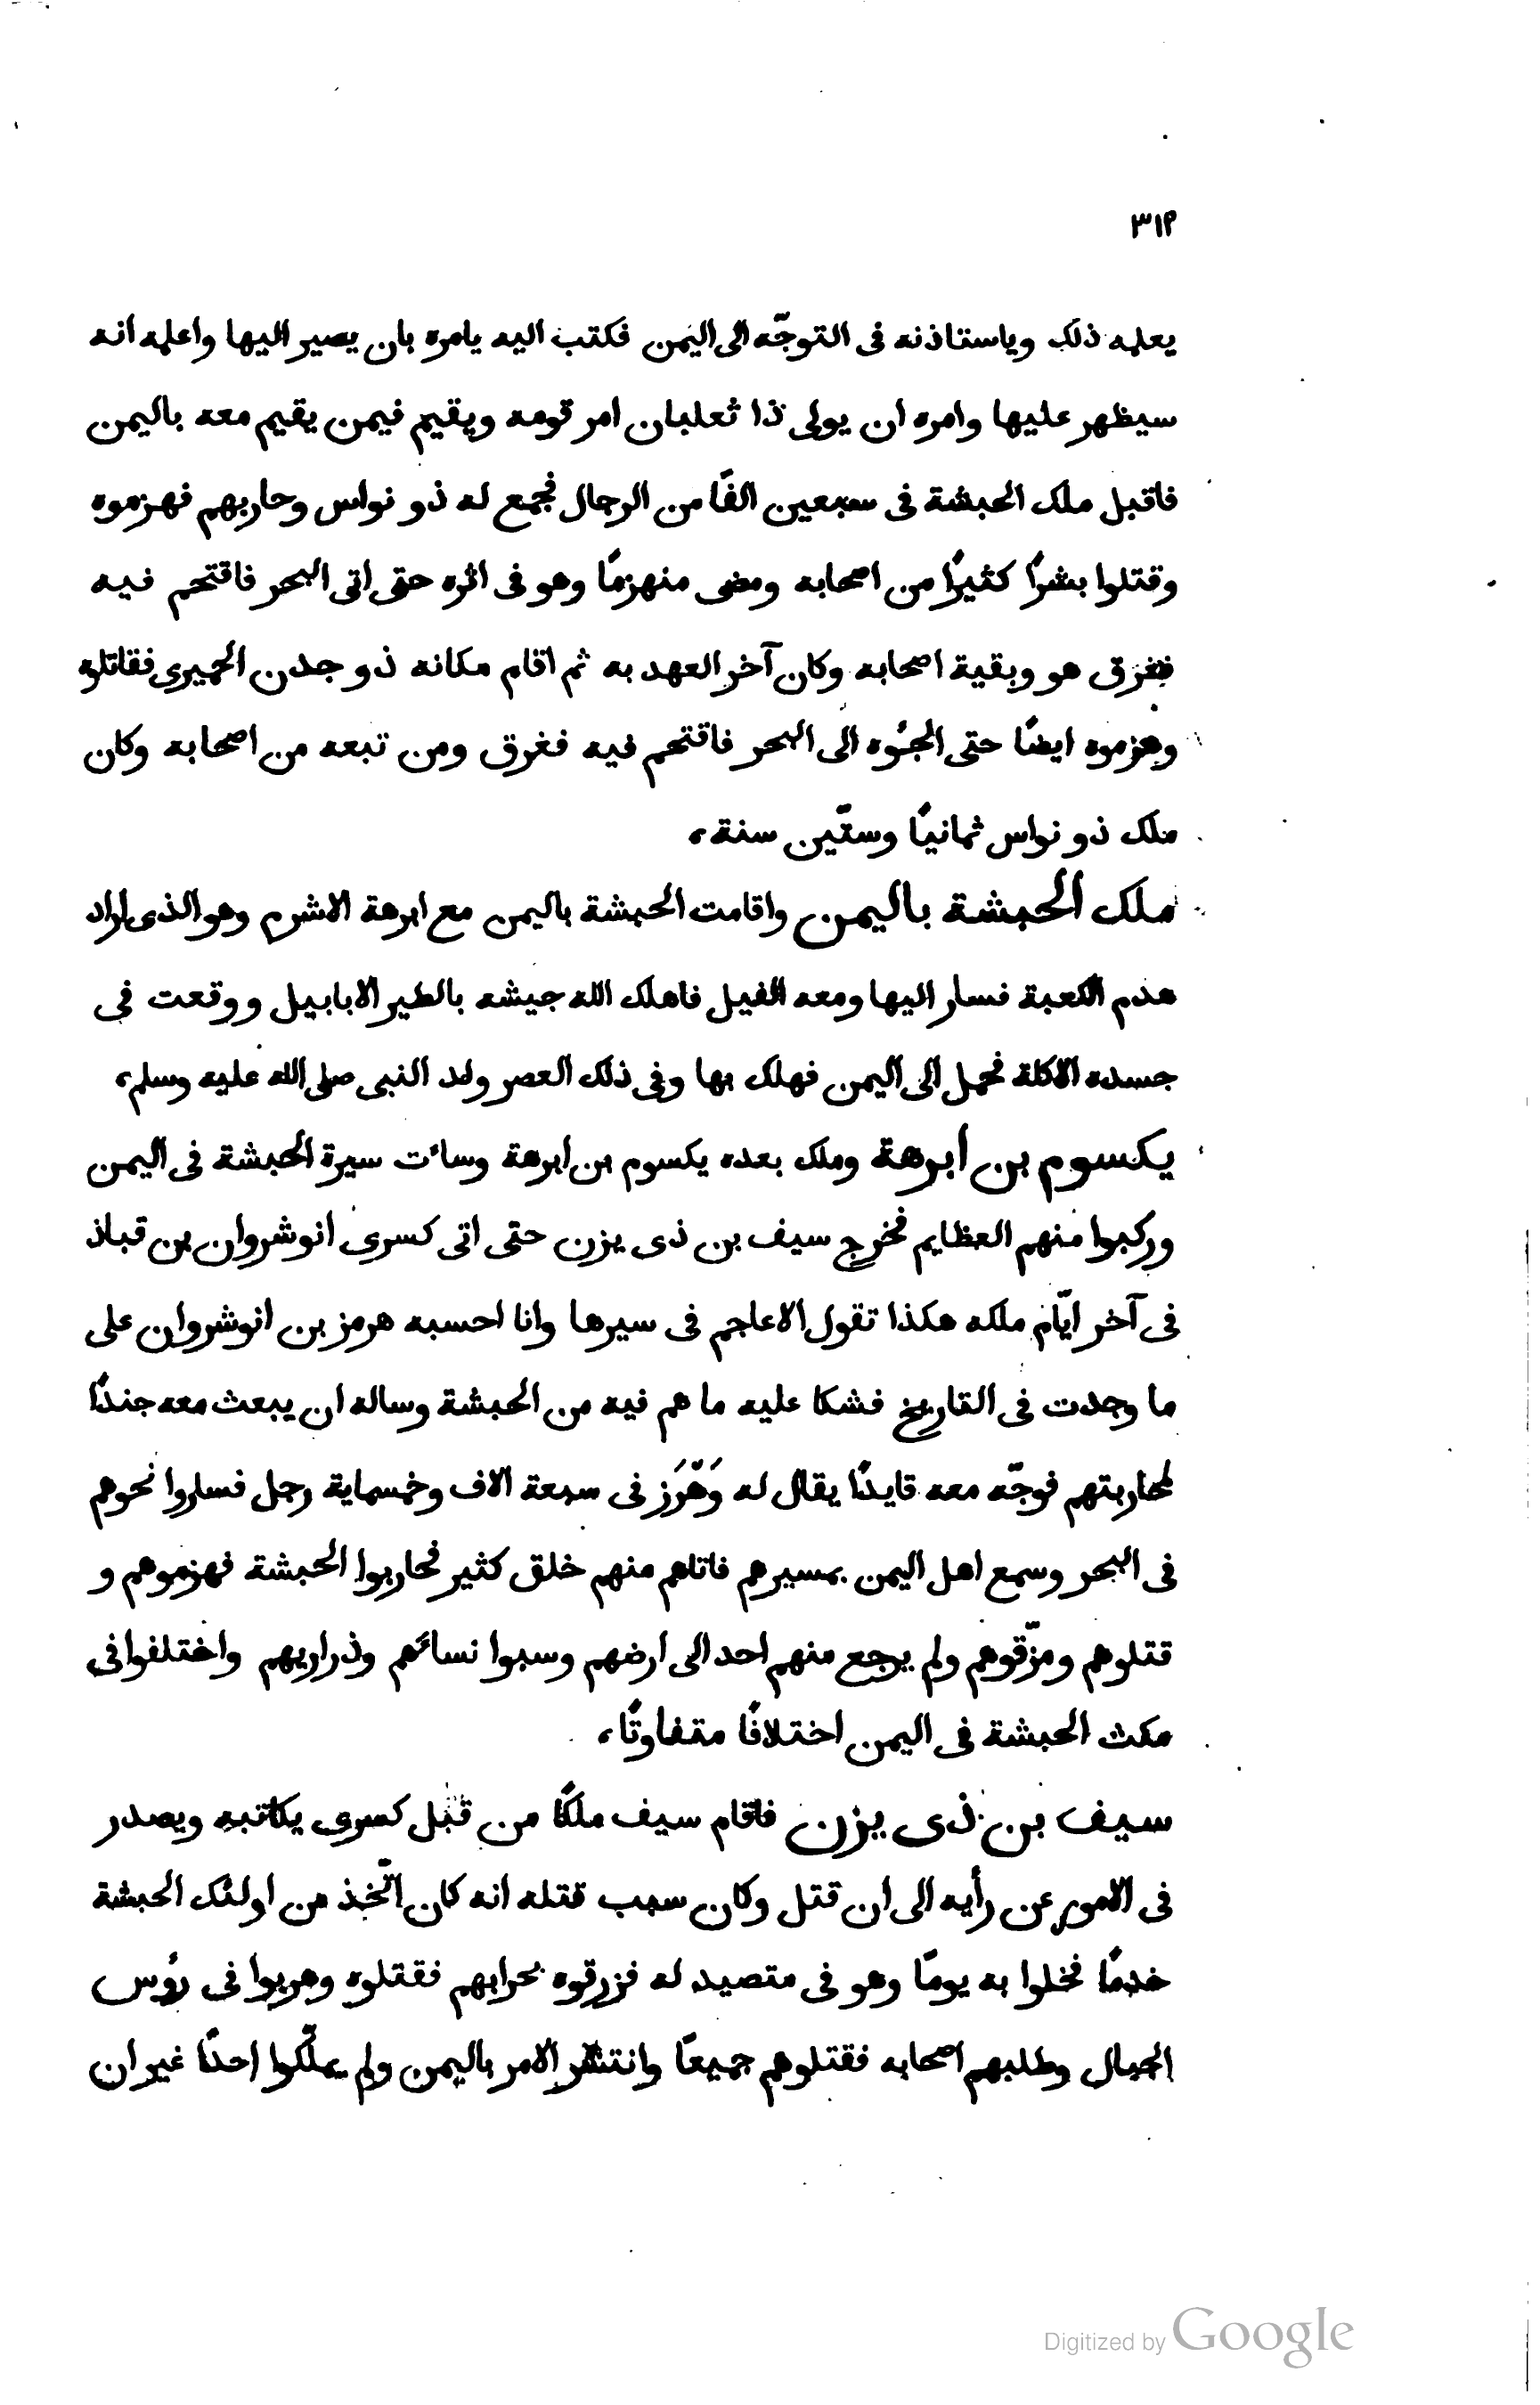 ٣١٢
يعلمه ذلك وياستاذنه فى التوجّه الى اليمن فكتب اليه يامره بان يصير اليها واعلمه انه
سيظهر عليها وامره ان يولى ذا ثعلبان امر قومه ويقيم فيمن يقيم معه باليمن
فاقبل ملك الحبشة فى سبعين الفًا من الرجال فجمع له ذو نواس وحاربهم فهزموه
وقتلوا بشرًا كثيرًا من اصحابه ومضى منهزمًا وهو فى اثره حتى اتى البحر فاقتحم فيه
فغرق هو وبقية اصحابه وكان آخر العهد به ثم اقام مكانه ذو جدن الحميرى فقاتلوه
وهزموه ايضًا حتى الجئوه الى البحر فاقتحم فيه فغرق ومن تبعه من اصحابه وكان
ملك ذو نواس ثمانيًا وستّين سنة،
ملك الحبشة باليمن واقامت الحبشة باليمن مع ابرهة الاشرم وهو الذى اراد
هدم الكعبة فسار اليها ومعه الفيل فاهلك الله جيشه بالطير الابابيل ووقعت فى
جسده الآكلة فحمل الى اليمن فهلك بها وفى ذلك العصر ولد النبى صلى الله عليه وسلم،
يكسوم بن ابرهة وملك بعده يكسوم بن ابرهة وسائت سيرة الحبشة فى اليمن
وركبوا منهم العظايم فخرج سيف بن ذى يزن حتى اتى كسرى انوشروان بن قباذ
فى آخر ايّام ملكه هكذا تقول الاعاجم فى سيرها وانا احسبه هرمز بن انوشروان على
ما وجدت فى التاريخ فشكا عليه ما هم فيه من الحبشة وساله ان يبعث معه جندًا
لمحاربتهم فوجّه معه قايدًا يقال له وَهْرَز فى سبعة الاف وخمسماية رجل فساروا نحوهم
فى البحر وسمع اهل اليمن بمسيرهم فاتاهم منهم خلق كثير فحاربوا الحبشة فهزموهم و
قتلوهم ومزّقوهم ولم يرجع منهم احد الى ارضهم وسبوا نسائهم وذراريهم واختلفوا فى
مكث الحبشة فى اليمن اختلافًا متفاوتًا،
سيف بن ذى يزن فاقام سيف ملكًا من قبل كسرى يكاتبه ويصدر
فى الامور عن رأيه الى ان قتل وكان سبب قتله انه كان اتّخذ من اولئك الحبشة
خدمًا فخلوا به يومًا وهو فى متصيد له فزرقوه بحرابهم فقتلوه وهربوا فى رؤس
الجبال وطلبهم اصحابه فقتلوهم جميعًا وانتشر الامر باليمن ولم يملّكوا احدًا غير ان
Digitized by Google